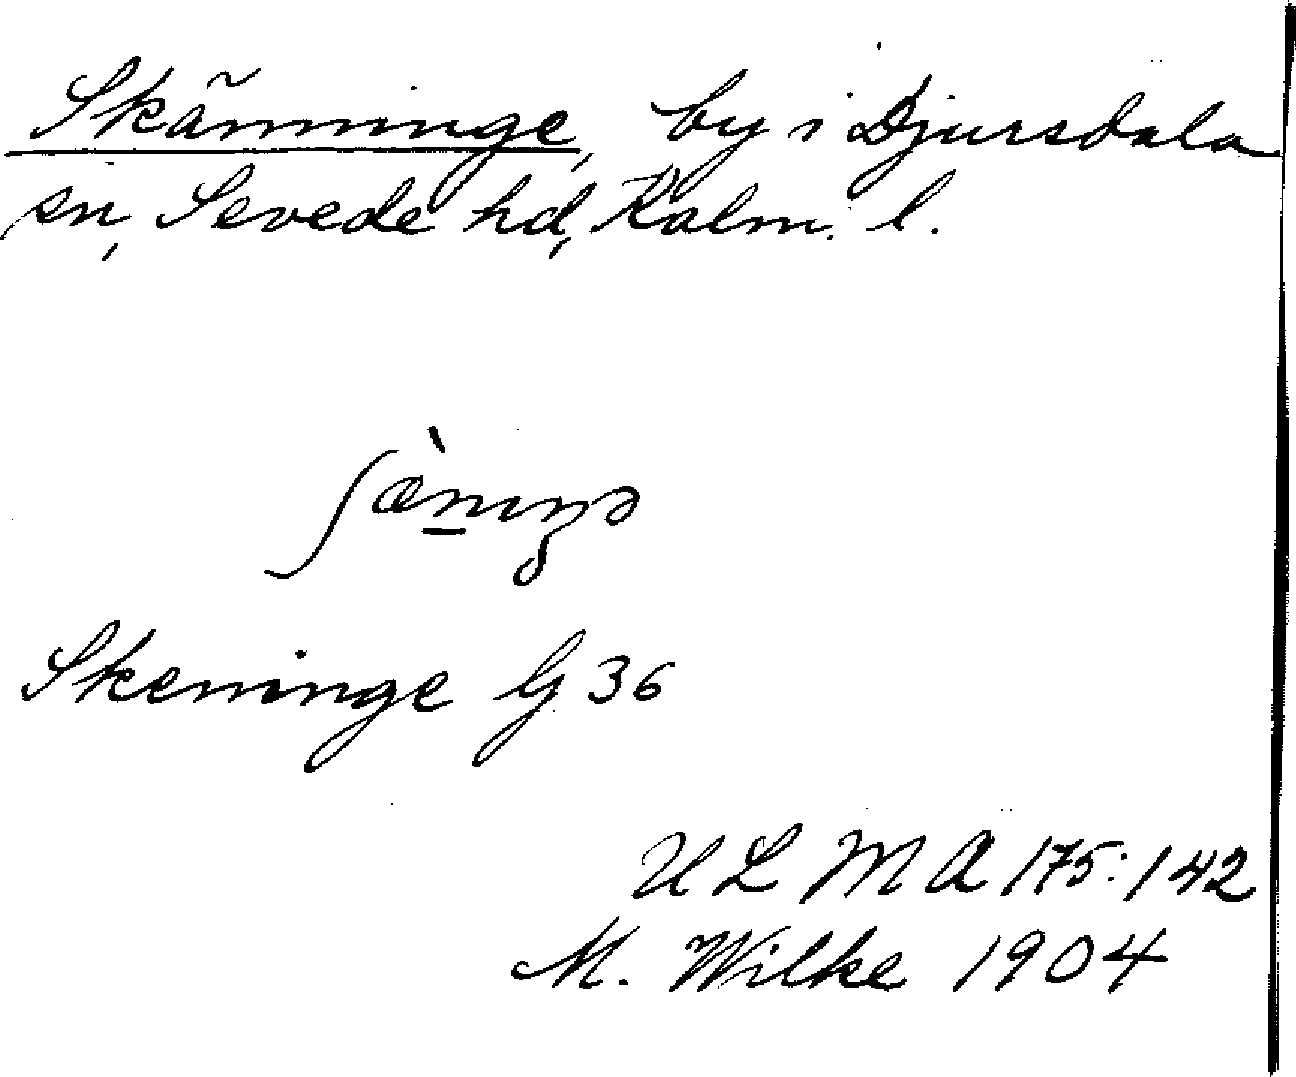 Skänninge, by i Djursdala
sn, Sevede hd, Kalm. l.
ʃæ̀nıŋə
Skeninge G 36
ULMA 175:142
M. Wilke 1904